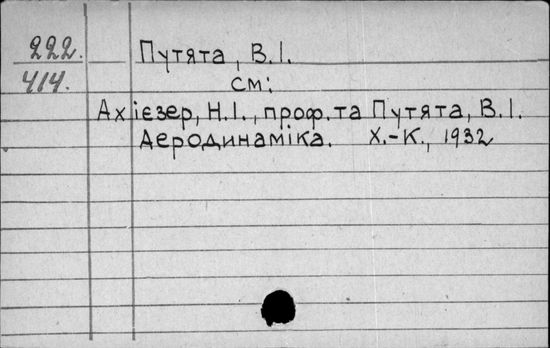 222.
414.
Путята, В.І.
см:
Ахієзер, Н.І., проф. та Путята, В.І.
Аеродинаміка. Х.-К., 1932